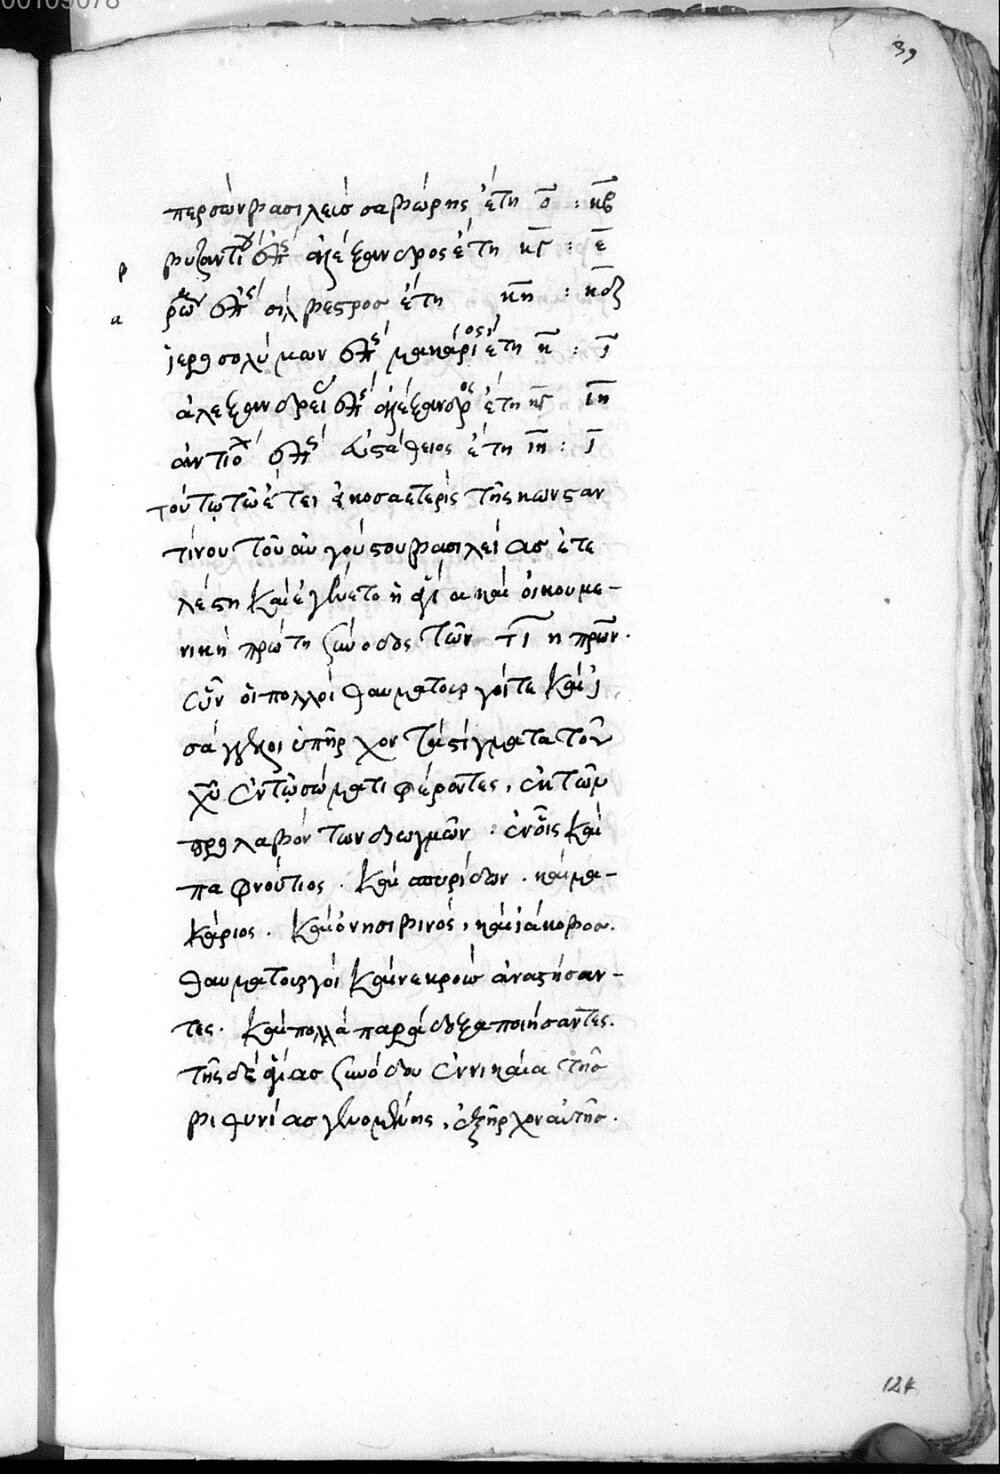 00109078
39
περσῶν βασιλεὺς σαβώρης ἔτη ο̅ : κ̅β̅
ρ βυζαντίου ἐπί ἀλέξανδρος ἔτη κ̅ς̅ : ε̅
α ῥώμ ἐπίς σίλβεστρος ἔτη κ̅η̅ :
ἱεροσολύμων ἐπίς μακάριος ἔτη κ̅ : ι̅
ἀλεξανδρείας ἐπίς ἀλέξανδρος ἔτη κ̅ς̅ ι̅η̅
ἀντιοχ ἐπίς εὐστάθειος ἔτη ι̅η̅ : ι̅
τούτω τῶ ἔτει εἰκοσαετερὶς τῆς κωνσταν
τίνου τοῦ αὐγούστου βασιλείας ἐτε
λέσθη καὶ ἐγένετο ἡ ἁγία καὶ οἰκουμε-
νικὴ πρώτη σύνοδος τῶν τ̅ι̅ η πρων.
ὧν οἱ πολλοὶ θαυματουργοί τε καὶ ἰ
σάγγελοι ὑπῆρχον τὰ στίγματα τοῦ
χῦ ἐν τῶ σώματι φέροντες, ἐκ τῶν
προλαβόντων διωγμῶν. ἐν οἷς καὶ
παφνούτιος. καὶ σπυρίδων. καὶ μα-
κάριος. καὶ ὁ νησιβινός, καὶ ἰάκωβος.
θαυματουργοὶ καὶ νεκροὺς ἀναστήσαν-
τες. καὶ πολλὰ παράδοξα ποιήσαντες.
τῆς δὲ ἁγίας συνόδου ἐν νικαία τῆς
βιθυνίας γενομένης, ἐξῆρχον αὐτῆς.
124